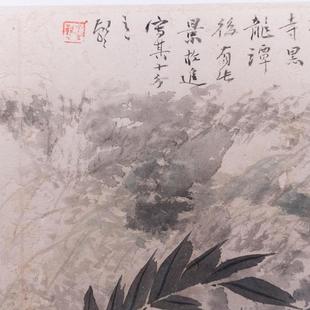 寺黑
龍潭
後有此
景故進
寫其十分
之